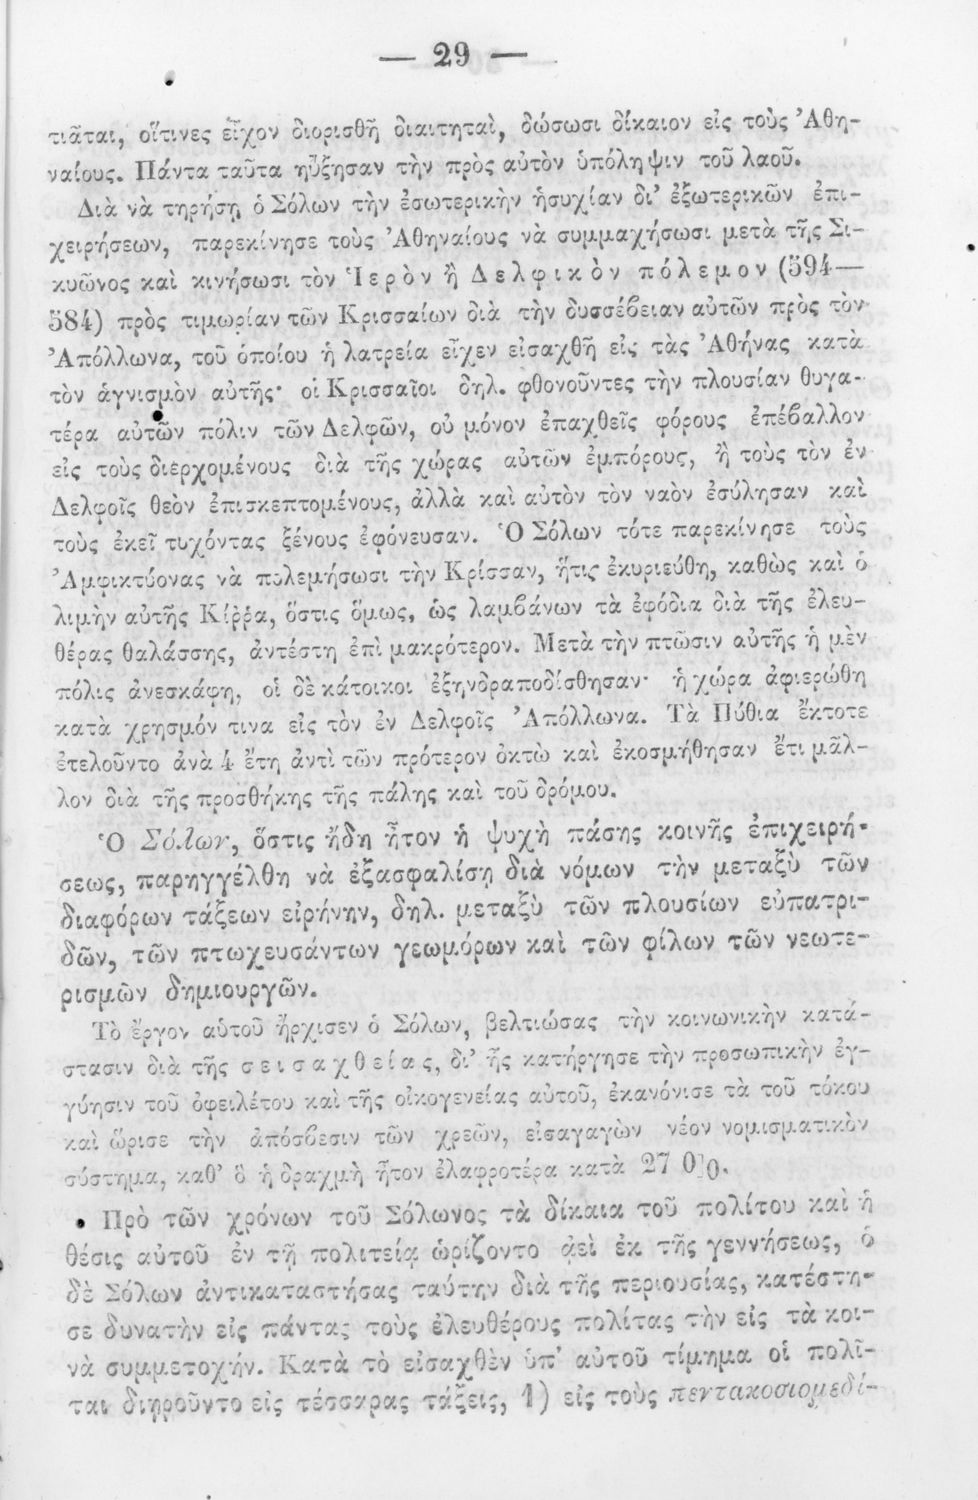 — 29 —
τιᾶται, οἵτινες εἶχον διορισθῆ διαιτηταὶ, δώσωσι δίκαιον εἰς τοὺς Ἀθη-
ναίους. Πάντα ταῦτα ηὔξησαν τὴν πρὸς αὐτὸν ὑπόληψιν τοῦ λαοῦ.
Διὰ νὰ τηρήσῃ ὁ Σόλων τὴν ἐσωτερικὴν ἡσυχίαν δι' ἐξωτερικῶν ἐπι-
χειρήσεων, παρεκίνησε τοὺς Ἀθηναίους νὰ συμμαχήσωσι μετὰ τῆς Σι-
κυῶνος καὶ κινήσωσι τὸν Ἱερὸν ἢ Δελφικὸν πόλεμον (594—
584) πρὸς τιμωρίαν τῶν Κρισσαίων διὰ τὴν δυσσέβειαν αὐτῶν πρὸς τὸν
Ἀπόλλωνα, τοῦ ὁποίου ἡ λατρεία εἶχεν εἰσαχθῆ εἰς τὰς Ἀθήνας κατὰ
τὸν ἁγνισμὸν αὐτῆς· οἱ Κρισσαῖοι δηλ. φθονοῦντες τὴν πλουσίαν θυγα-
τέρα αὐτῶν πόλιν τῶν Δελφῶν, οὐ μόνον ἐπαχθεῖς φόρους ἐπέβαλλον
εἰς τοὺς διερχομένους διὰ τῆς χώρας αὐτῶν ἐμπόρους, ἢ τοὺς τὸν ἐν
Δελφοῖς θεὸν ἐπισκεπτομένους, ἀλλὰ καὶ αὐτὸν τὸν ναὸν ἐσύλησαν καὶ
τοὺς ἐκεῖ τυχόντας ξένους ἐφόνευσαν. Ὁ Σόλων τότε παρεκίνησε τοὺς
Ἀμφικτύονας νὰ πολεμήσωσι τὴν Κρίσσαν, ἥτις ἐκυριεύθη, καθὼς καὶ ὁ
λιμὴν αὐτῆς Κίῤῥα, ὅστις ὅμως, ὡς λαμβάνων τὰ ἐφόδια διὰ τῆς ἐλευ-
θέρας θαλάσσης, ἀντέστη ἐπὶ μακρότερον. Μετὰ τὴν πτῶσιν αὐτῆς ἡ μὲν
πόλις ἀνεσκάφη, οἱ δὲ κάτοικοι ἐξηνδραποδίσθησαν· ἡ χώρα ἀφιερώθη
κατὰ χρησμόν τινα εἰς τὸν ἐν Δελφοῖς Ἀπόλλωνα. Τὰ Πύθια ἔκτοτε
ἐτελοῦντο ἀνὰ 4 ἔτη ἀντὶ τῶν πρότερον ὀκτὼ καὶ ἐκοσμήθησαν ἔτι μᾶλ-
λον διὰ τῆς προσθήκης τῆς πάλης καὶ τοῦ δρόμου.
Ὁ Σόλων, ὅστις ἤδη ἦτον ἡ ψυχὴ πάσης κοινῆς ἐπιχειρή-
σεως, παρηγγέλθη νὰ ἐξασφαλίσῃ διὰ νόμων τὴν μεταξὺ τῶν
διαφόρων τάξεων εἰρήνην, δηλ. μεταξὺ τῶν πλουσίων εὐπατρι-
δῶν, τῶν πτωχευσάντων γεωμόρων καὶ τῶν φίλων τῶν νεωτε-
ρισμῶν δημιουργῶν.
Τὸ ἔργον αὐτοῦ ἤρχισεν ὁ Σόλων, βελτιώσας τὴν κοινωνικὴν κατά-
στασιν διὰ τῆς σεισαχθείας, δι' ἧς κατήργησε τὴν προσωπικὴν ἐγ-
γύησιν τοῦ ὀφειλέτου καὶ τῆς οἰκογενείας αὐτοῦ, ἐκανόνισε τὰ τοῦ τόκου
καὶ ὥρισε τὴν ἀπόσβεσιν τῶν χρεῶν, εἰσαγαγὼν νέον νομισματικὸν
σύστημα, καθ' ὃ ἡ δραχμὴ ἦτον ἐλαφροτέρα κατὰ 27 0]0.
Πρὸ τῶν χρόνων τοῦ Σόλωνος τὰ δίκαια τοῦ πολίτου καὶ ἡ
θέσις αὐτοῦ ἐν τῇ πολιτείᾳ ὡρίζοντο ἀεὶ ἐκ τῆς γεννήσεως, ὁ
δὲ Σόλων ἀντικαταστήσας ταύτην διὰ τῆς περιουσίας, κατέστη-
σε δυνατὴν εἰς πάντας τοὺς ἐλευθέρους πολίτας τὴν εἰς τὰ κοι-
νὰ συμμετοχήν. Κατὰ τὸ εἰσαχθὲν ὑπ' αὐτοῦ τίμημα οἱ πολῖ-
ται διῃροῦντο εἰς τέσσαρας τάξεις, 1) εἰς τοὺς πεντακοσιομεδί-